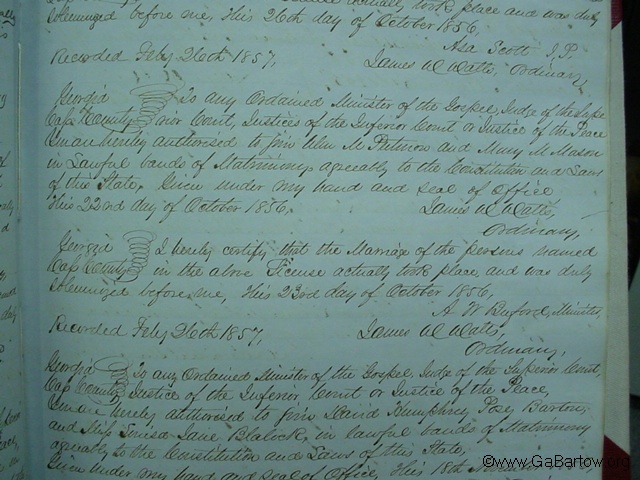 actually took place and was duly
solemnized before me, This 26th day of October 1856.
Asa Scott J.P.
Recorded Feby 26th 1857, James W Watts, Ordinary,
Georgia To any Ordained Minister of the Gospel, Judge of the Supe
Cass County rior Court, Justices of the Inferior Court or Justice of the Peace
You are hereby authorised to join Wm M and Mary M Mason
in Lawful bands of Matrimony agreably to the Constitution and Laws
of this State, Given under my hand and seal of Office
This 23rd day of October 1856. James W Watts,
Ordinary,
Georgia I hereby certify that the Marriage of the persons named
Cass County in the above License actually took place and was duly
solemnized before me, this 23rd day of October 1856.
A W Buford, Minister,
Recorded Feby 26th 1857, James W Watts,
Ordinary,
Georgia To any Ordained Minister of the Gospel, Judge of the Superior Court,
Cass County Justice of the Inferior Court or Justice of the Peace,
You are hereby authorised to join David Humphry Posey Barton,
and Miss Louisa Jane Blalock, in lawful bands of Matrimony
agreably to the Constitution and Laws of this State,
Given under my hand and seal of Office, This 18th
©www.GaBartow.org